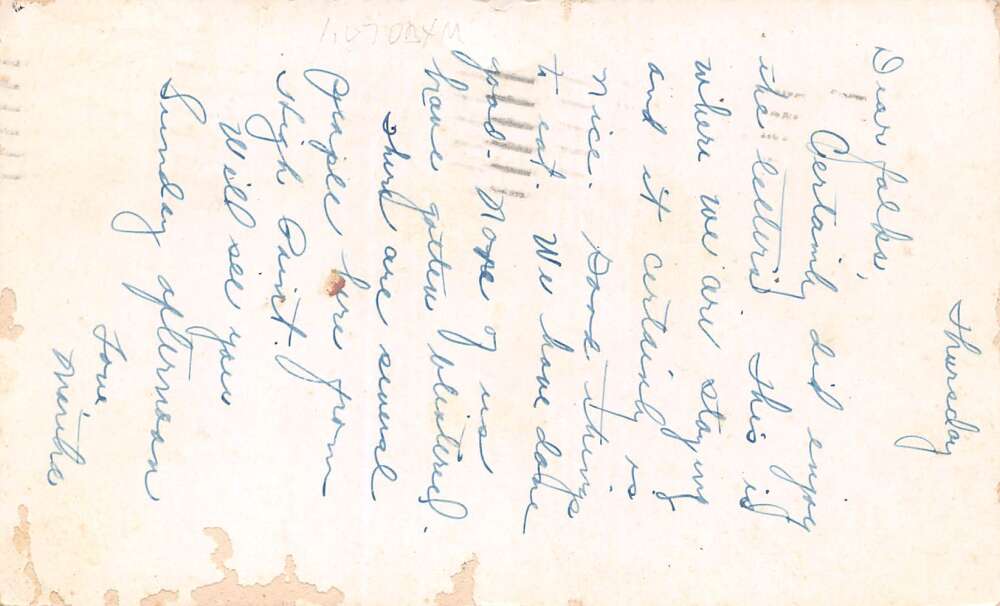 Thursday
Dear folks,
Certainly did enjoy
the letters. This is
where we are staying
and it certainly is
nice. Good things
to eat. We have done
good. None of us
have gotten blistered.
There are several
people here from
High Point.
Will see you
Sunday afternoon
Love
Martha